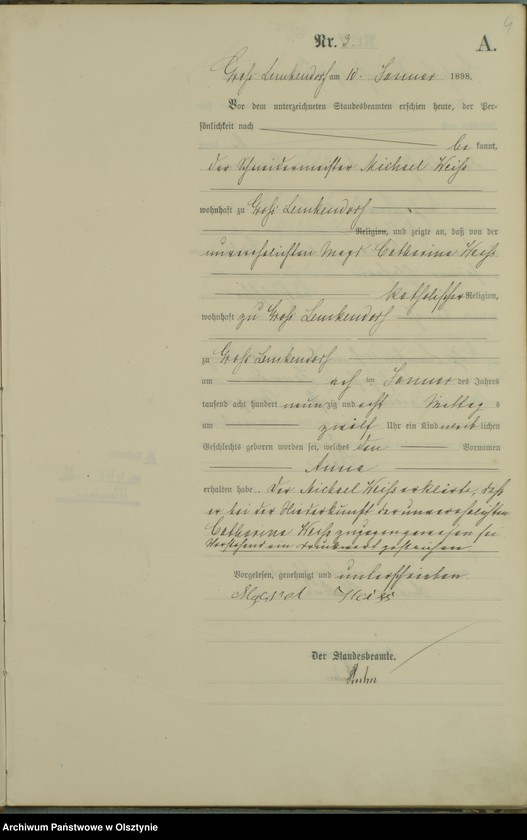 4
Nr. 3.
A.
Groß Lemkendorf am 10. Januar 1898.
Vor dem unterzeichneten Standesbeamten erschien heute, der Per-
sönlichkeit nach
be kannt,
der Schneidermeister Michael Weiß
wohnhaft zu Groß Lemkendorf
Religion, und zeigte an, daß von der
unverehelichten Magd Catharina Weiß
katholischer Religion,
wohnhaft zu Groß Lemkendorf
zu Groß Lemkendorf
am acht ten Januar des Jahres
tausend acht hundert neun zig und acht Mittag s
um zwölf Uhr ein Kind weib lichen
Geschlechts geboren worden sei, welches den Vornamen
Anna
erhalten habe. Der Michael Weiß erklärte, daß
er bei der Niederkunft der unverehelichten
Catharina Weiß zugegen gewesen sei
Vorstehend ein Druckwort gestrichen
Vorgelesen, genehmigt und unterschrieben
Weiss
Der Standesbeamte.
Archiwum Państwowe w Olsztynie